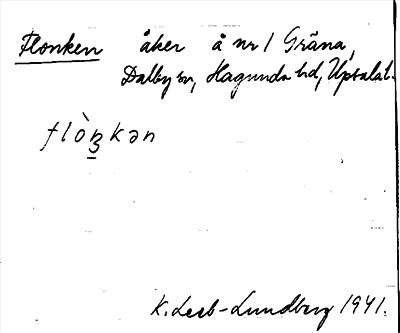 Flonken åker å nr 1 Gräna,
Dalby sn, Hagunda hd, Upsala l.
flòŋkən
K. Leeb-Lundberg 1941.